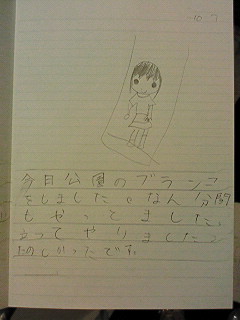 10 7
今日公園のブランコ
をしました。なん分間
もやってました。
立ってやりました。
たのしかったです。